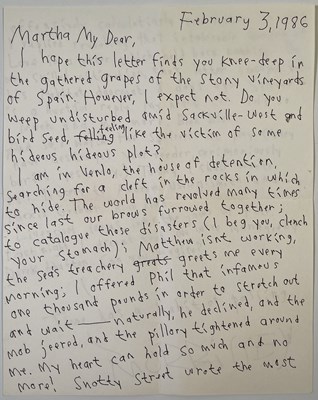 February 3, 1986
Martha My Dear,
I hope this letter finds you knee-deep in
the gathered grapes of the stony vineyards
of Spain. However, I expect not. Do you
weep undisturbed amid Sackville-West and
bird seed, feeling like the victim of some
hideous hideous plot?
I am in Venlo, the house of detention,
searching for a cleft in the rocks in which
to hide. The world has revolved many times
since last our brows furrowed together;
to catalogue those disasters (I beg you, clench
your stomach); Matthew isnt working,
the sod's treachery greets greets me every
morning; I offered Phil that infamous
one thousand pounds in order to stretch out
and wait — naturally, he declined, and the
mob jeered, and the pillory tightened around
me. My heart can hold so much and no
more! Snotty Street wrote the most